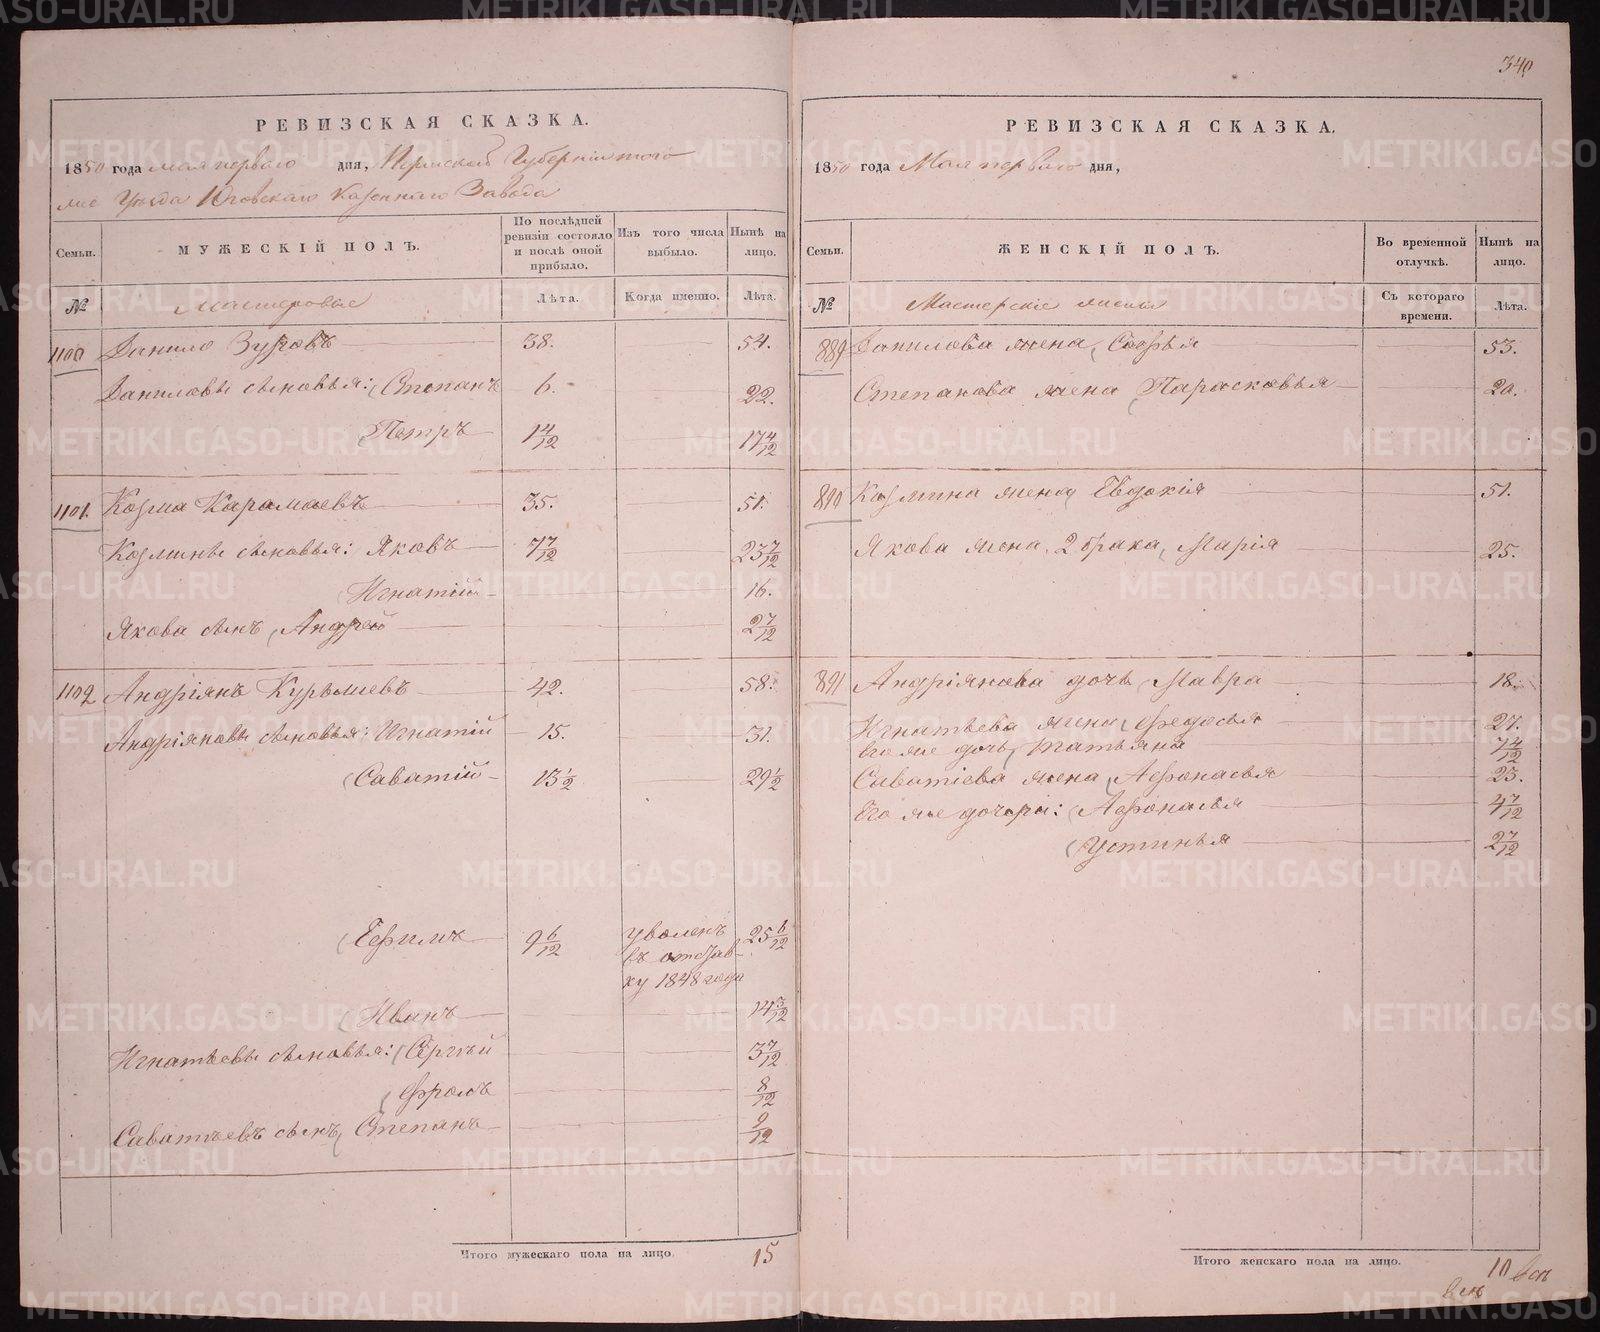 340
РЕВИЗСКАЯ СКАЗКА.
1850 года мая перваго дня, Пермской Губернiи того
же Уѣзда Юговскаго Казеннаго Завода
Семьи.
МУЖЕСКIЙ ПОЛЪ.
По послѣдней ревизiи состояло и послѣ оной прибыло.
Изъ того числа выбыло.
Нынѣ на лицо.
№
Мастеровые
Лѣта.
Когда именно.
Лѣта.
1100 Данило Зуевъ 38. 54.
Даниловы сыновья: Степанъ 6. 22.
Петръ 1 4/12 17 4/12
1101. Козма Карамаевъ 35. 51.
Козмины сыновья: Яковъ 7 7/12 23 7/12
Игнатiй 16.
Якова сынъ Андрей 2 7/12
1102 Андрiянъ Курышевъ 42. 58.
Андрiяновы сыновья: Игнатiй 15. 31.
Саватiй 13 1/2 29 1/2
Ефимъ 9 6/12 уволенъ 25 6/12
въ отстав-
ку 1848 года
Иванъ 14 3/12
Игнатьевы сыновья: Сергѣй 3 7/12
Фролъ 8/12
Саватѣевъ сынъ Степанъ 9/12
Итого мужескаго пола на лицо. 15
РЕВИЗСКАЯ СКАЗКА.
1850 года Мая перваго дня,
Семьи.
ЖЕНСКIЙ ПОЛЪ.
Во временной отлучкѣ.
Нынѣ на лицо.
№
Мастерскiе жены
Съ котораго времени.
Лѣта.
889 Данилова жена Софья 53.
Степанова жена Парасковья 20.
890 Козмина жена Евдокiя 51.
Якова жена 2 брака, Марiя 25.
891 Андрiянова дочь Мавра 18.
Игнатьева жена Федосья 27.
Его же дочь Татьяна 7 4/12
Саватiева жена Афонасья 23.
Его же дочери: Афонасья 4 7/12
Устинья 2 7/12
Итого женскаго пола на лицо. 10
METRIKI.GASO-URAL.RU